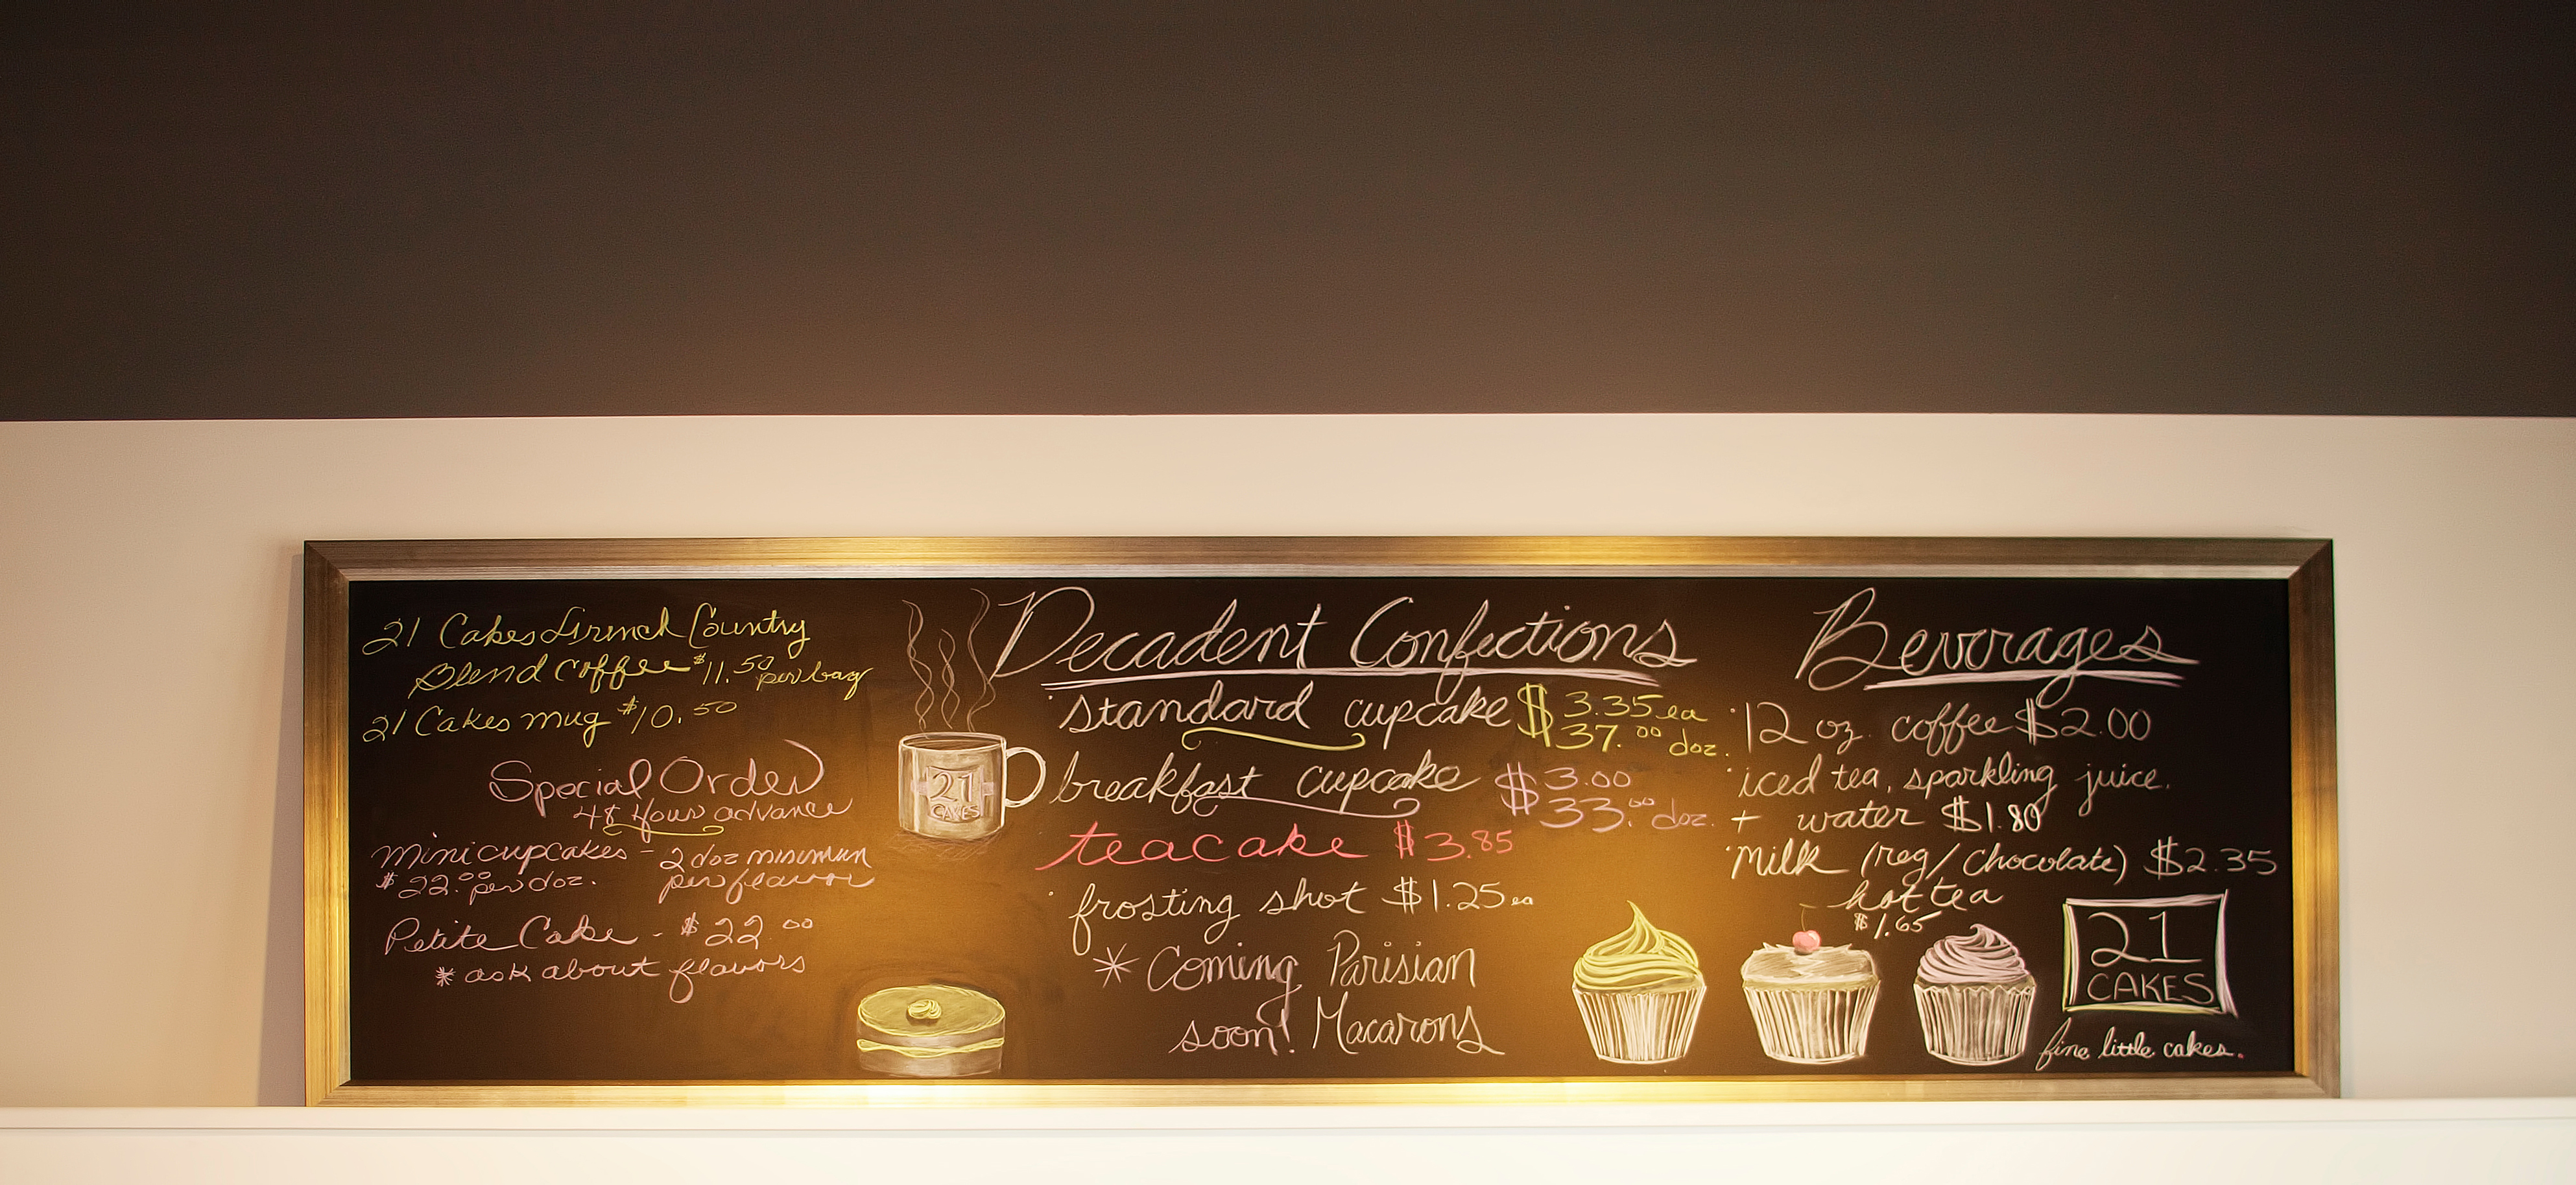 21 Cakes French Country
Blend Coffee $11.50 per bag
21 Cakes mug $10.50
Special Order
48 Hour advance
mini cupcakes - 2 doz minimum
$22.00 per doz. per flavor
Petite Cake - $22.00
* ask about flavors
21
CAKES
Decadent Confections
standard cupcake $3.35 ea
37.00 doz.
breakfast cupcake $3.00
33.00 doz.
teacake $3.85
frosting shot $1.25 ea
* Coming Parisian
soon! Macarons
Beverages
12 oz. coffee $2.00
iced tea, sparkling juice.
+ water $1.80
milk (reg/chocolate) $2.35
hot tea
$1.65
21
CAKES
fine little cakes.